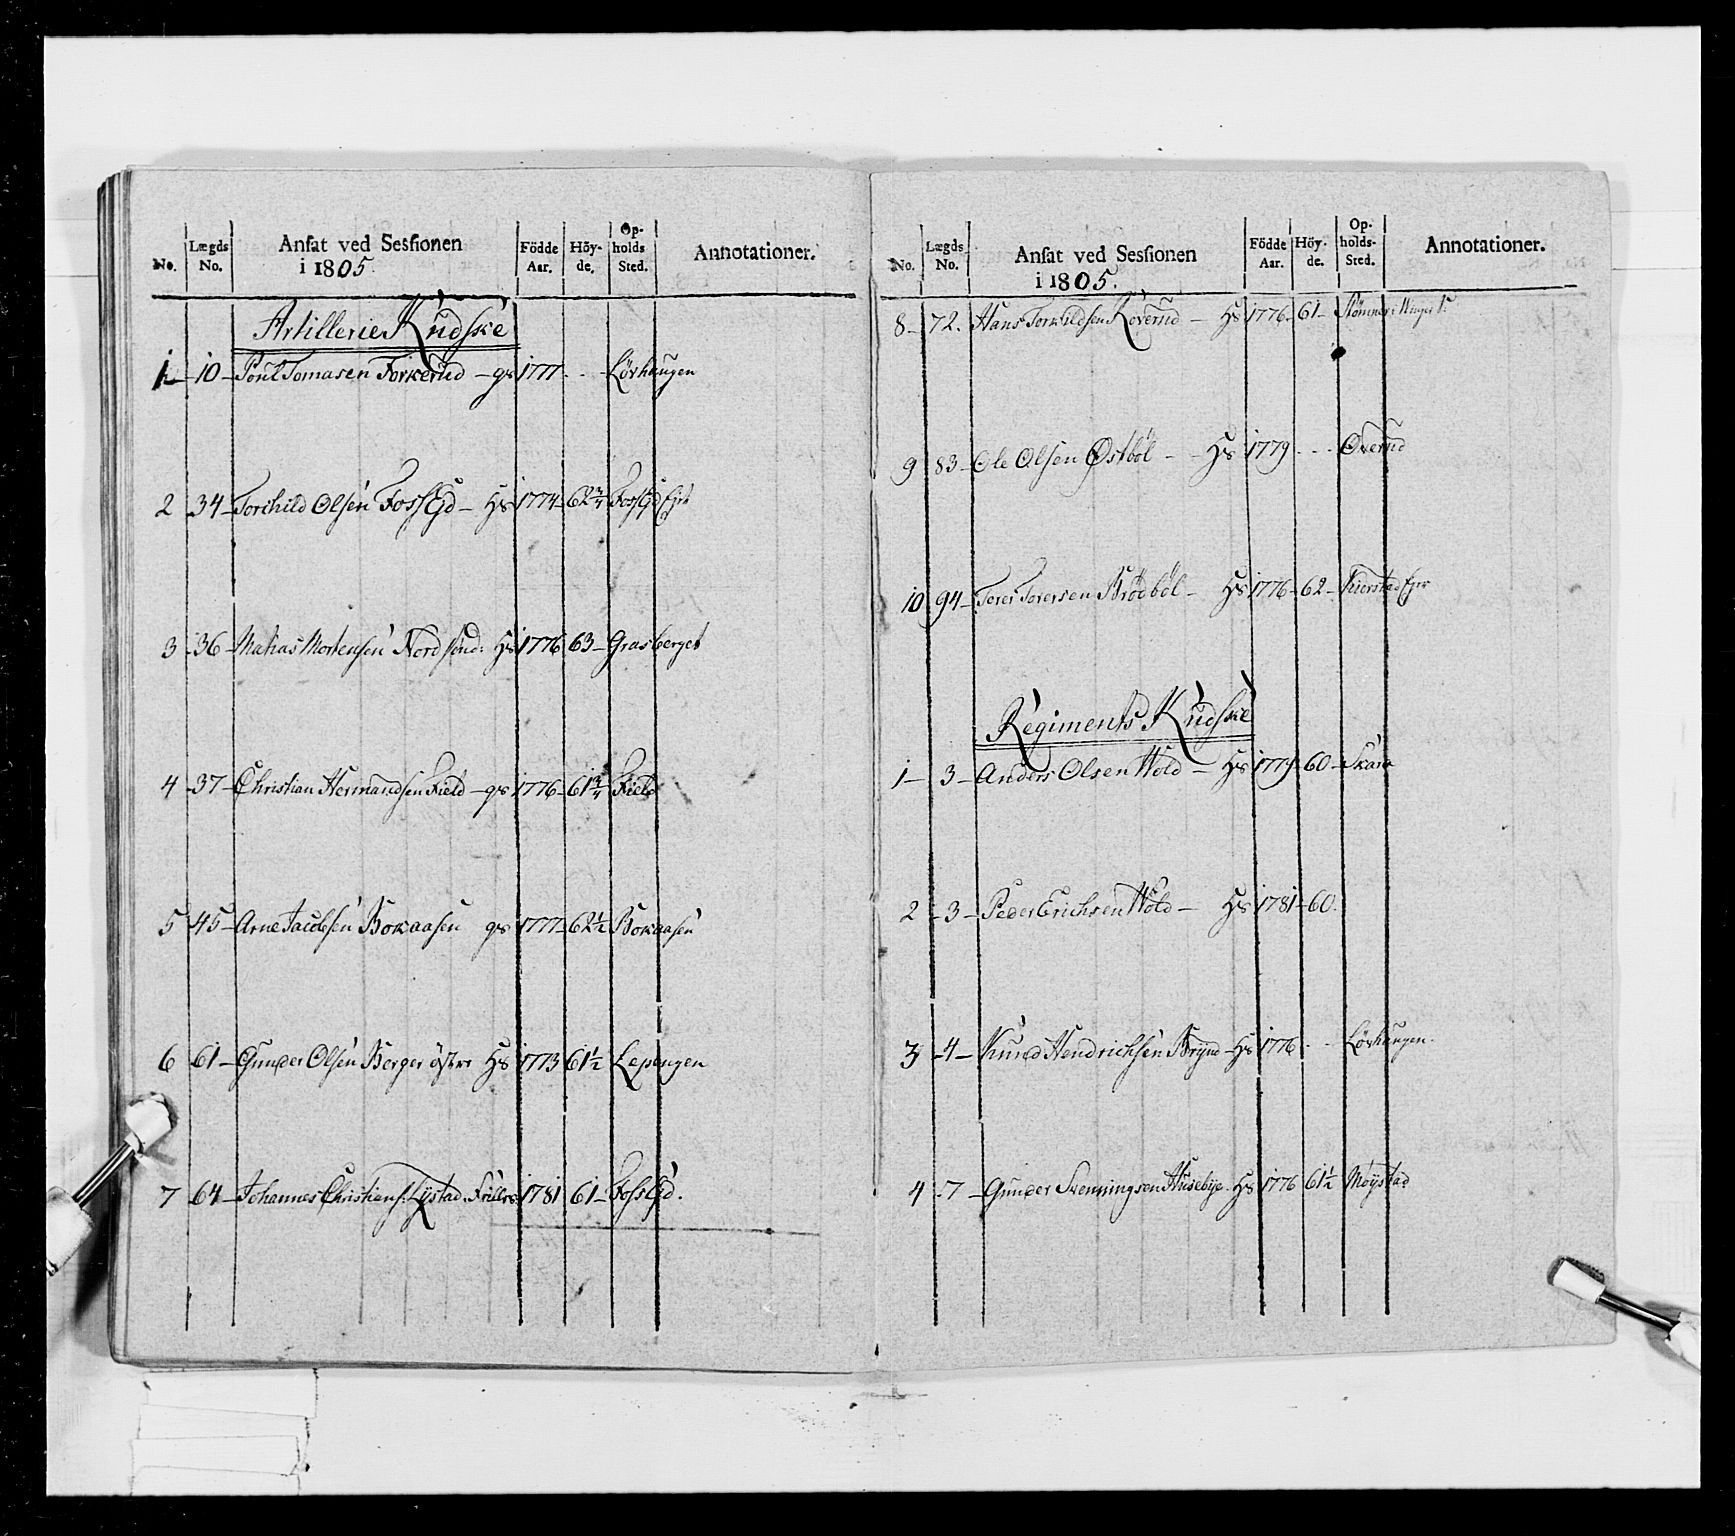 No. Lægds No. Ansat ved Sessionen i 1805. Födde Aar. Höyde. Opholds Sted. Annotationer.
Artillerie Kudske
1 - 10 - Poul Tomasen Torkerud - gs 1777 - - Lövhaugen
2 34 - Torchild Olsen Foss Ejd - Hs 1774 - 62 3/4 Foss Ejd Ejer
3 - 36 - Matias Mortensen Nordsind: Hs 1776 63 - Grasberget
4 - 37 - Christian Hermandsen Field - gs 1776 - 61 3/4 Field
5 45 - Arne Jacobsen Bokaasen gs 1777 - 62 1/2 Bokaasen
6 61 - Gunder Olsen Berger östre Hs 1773 61 1/2 Lepengen
7 64 - Johannes Christians: Lystad 1781 61 - Foss Ejd.
No. Lægds No. Ansat ved Sessionen i 1805. Födde Aar. Höyde. Opholds-Sted. Annotationer.
8 - 72. Hans Torkildsen Roverud - Hs 1776 - 61 -
9 83 - Ole Olsen Østböl - - Hs 1779 - - - Overud
10 94 - Torer Torersen Brödböl - Hs 1776 - 62 - Kierstad Ejer
Regiments Kudske
1 - 3 - Anders Olsen Wold - Hs 1779 60 -
2 - 3 - Peder Erichsen Wold - Hs 1781 - 60.
3 - 4 - Knud Hendrichsen Brynd - Hs 1776 - - Lövhaugen.
4 - 7 - Gunder Svenningsen Husebye - Hs 1776 61 1/2 Möystad